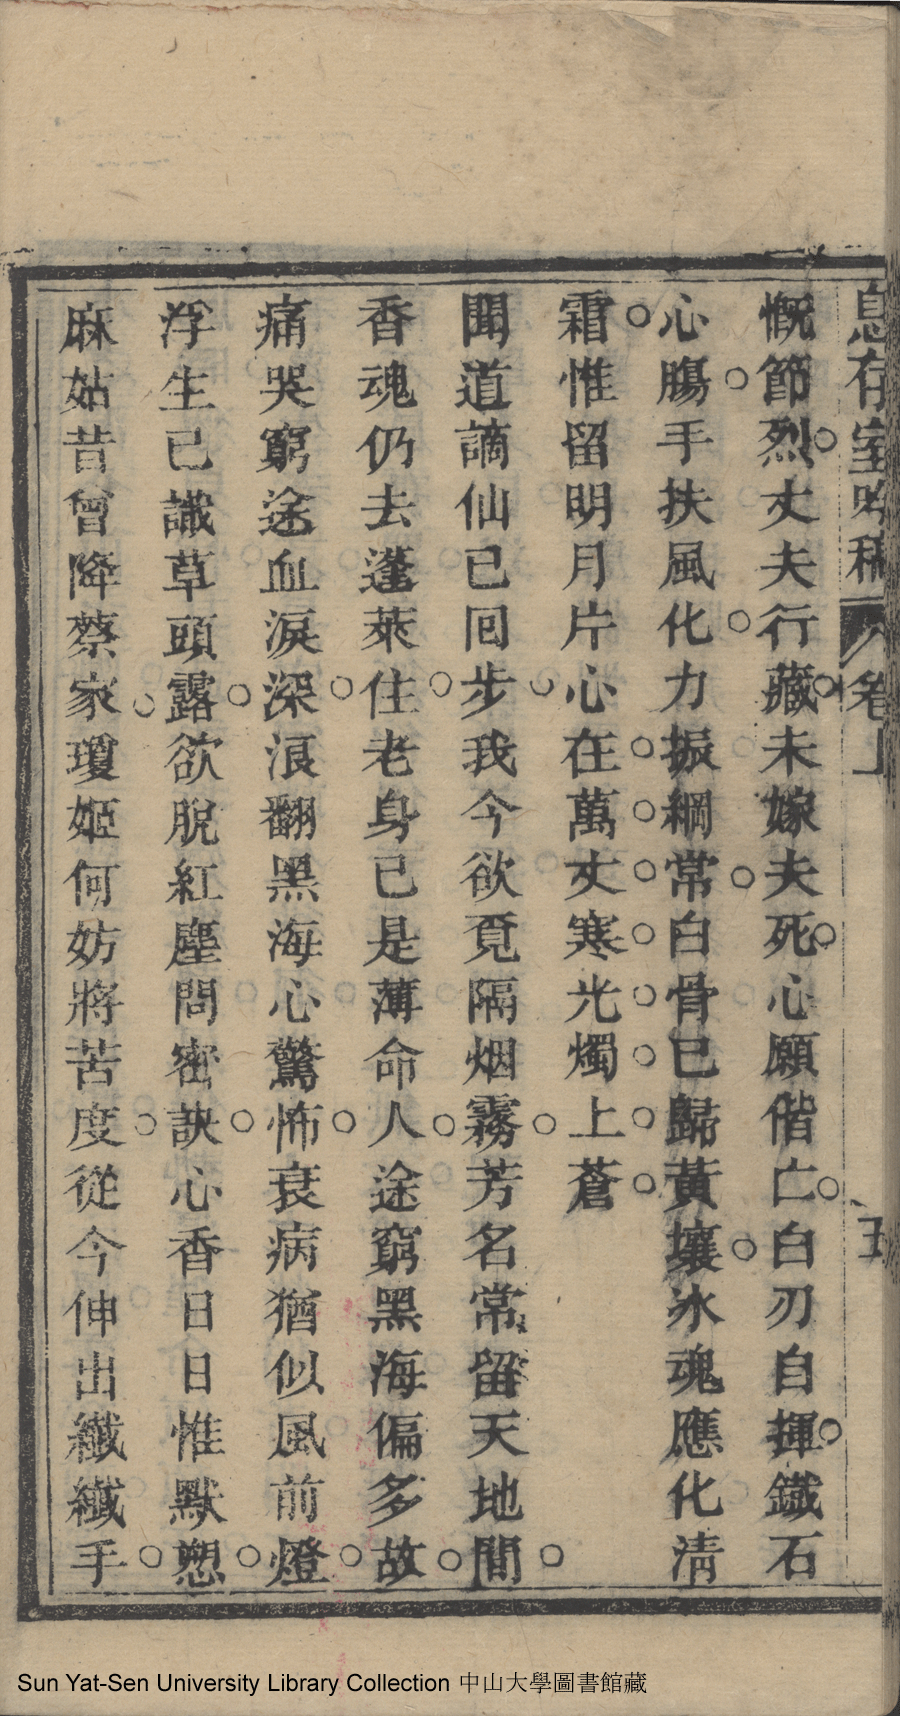 息存室吟稿 卷上 五
慨節烈丈夫行藏未嫁夫死心願偕亡白刃自揮鐵石
心腸手扶風化力振綱常白骨已歸黃壤氷魂應化清
霜惟留明月片心在萬丈寒光燭上蒼
聞道謫仙已回步我今欲覓隔烟霧芳名常留天地間
香魂仍去蓬萊住老身已是薄命人途窮黑海偏多故
痛哭窮途血淚深浪翻黑海心驚怖衰病猶似風前燈
浮生已識草頭露欲脫紅塵問密訣心香日日惟默愬
麻姑昔曾降蔡家瓊姬何妨將苦度從今伸出纖纖手
Sun Yat-Sen University Library Collection 中山大學圖書館藏